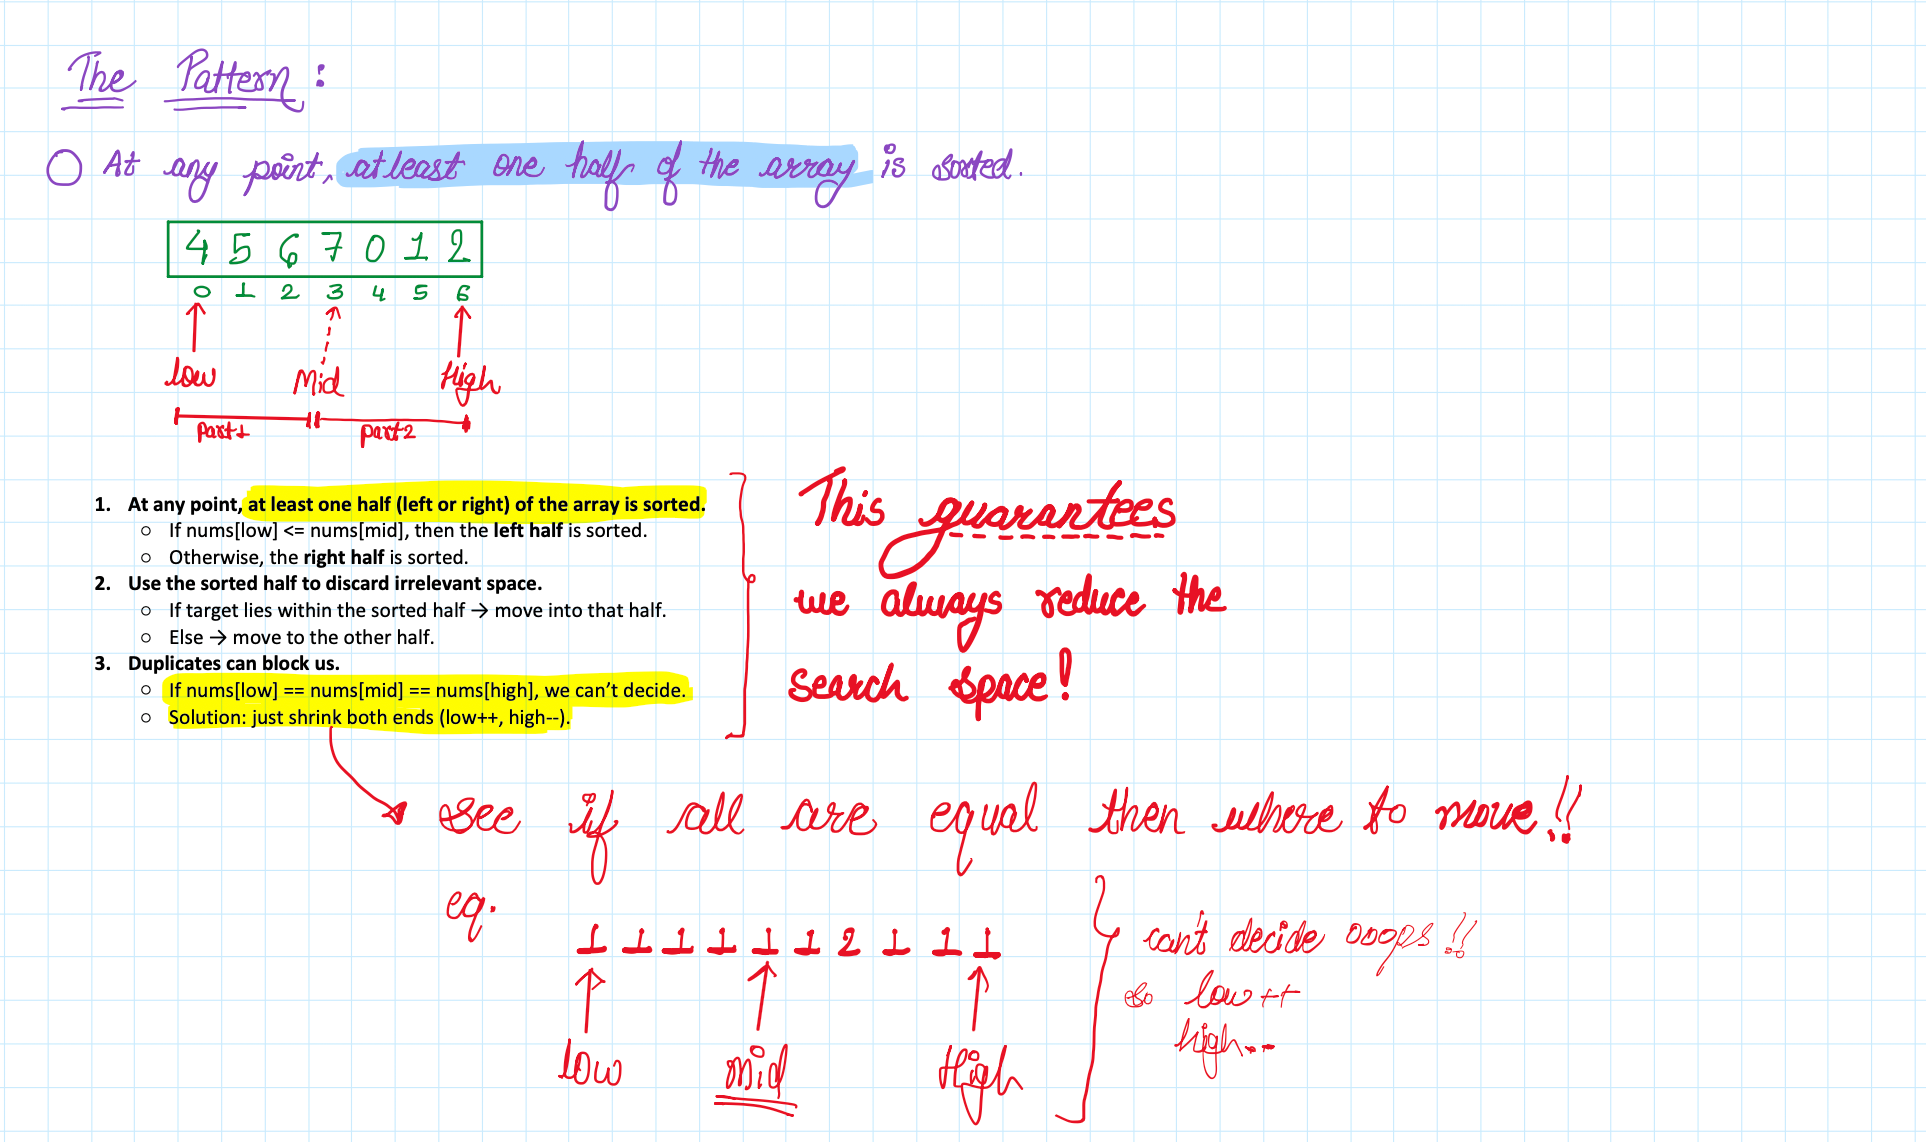 The Pattern:
○ At any point, atleast one half of the array is sorted.
4 5 6 7 0 1 2
0 1 2 3 4 5 6
low Mid High
Part1 part2
1. At any point, at least one half (left or right) of the array is sorted.
○ If nums[low] <= nums[mid], then the left half is sorted.
○ Otherwise, the right half is sorted.
2. Use the sorted half to discard irrelevant space.
○ If target lies within the sorted half → move into that half.
○ Else → move to the other half.
3. Duplicates can block us.
○ If nums[low] == nums[mid] == nums[high], we can't decide.
○ Solution: just shrink both ends (low++, high--).
This guarantees
we always reduce the
search space!
see if all are equal then where to move!!
eg.
1 1 1 1 1 1 2 1 1 1
low mid High
can't decide ooops!!
so low++
high--